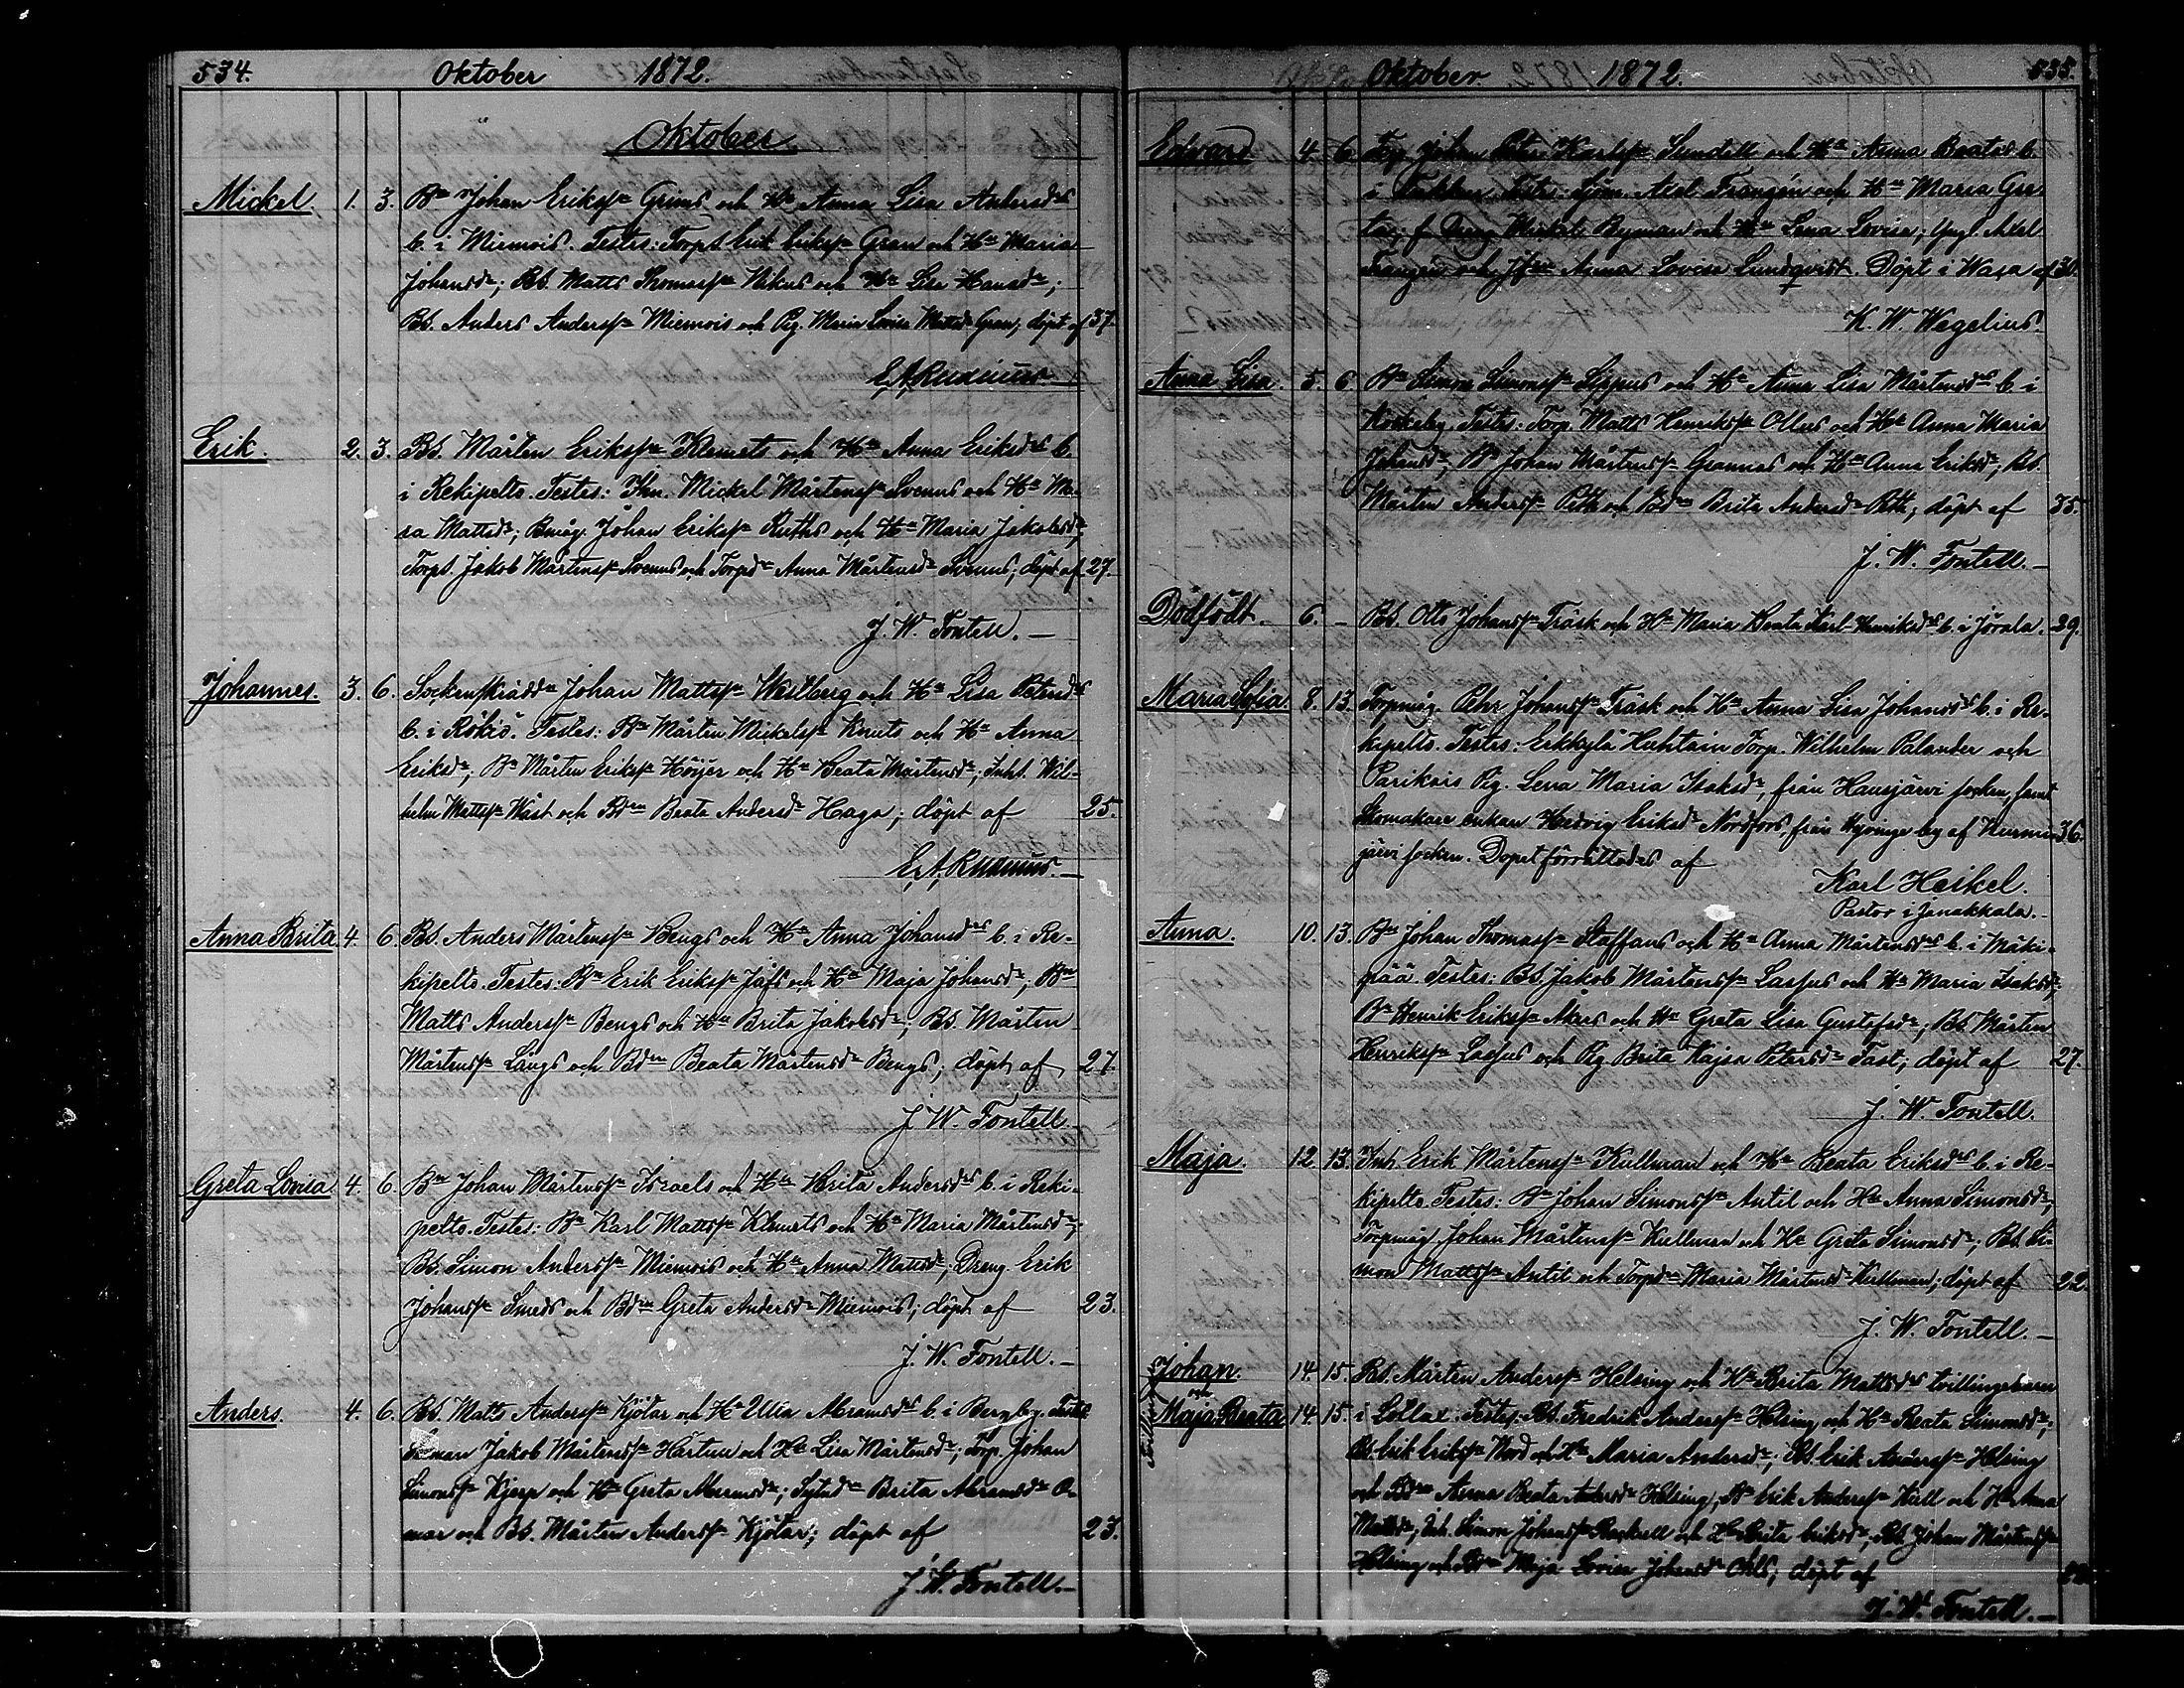 534. Oktober 1872.
Oktober
Mickel. 1. 3. Bn Johan Erikssn Grims och Hu Anna Lisa Andersdrs
b. i Miemois. Testes: Torpd Erik Erikssn Gran och Hu Maria
Johansdr; Bd. Matts Thomassn Nikus och Hu Lisa Hansdr;
Bd. Anders Anderssn Miemois och Pig. Maria Lovisa Mattsdr Gran; döpt af 37.
E. A. Rudnäus
Erik. 2. 3. Bd. Mårten Erikssn Klemets och Hu Anna Eriksdrs b.
i Rekipelto. Testes: Mickel Mårtenssn Svenns och Hu Ma-
ria Mattsdr; Bmåg. Johan Erikssn Ruths och Hu Maria Jakobsdr;
Torpd. Jakob Mårtenssn Svenns och Torpdr Anna Mårtensdr Svenns; döpt af 27.
J. W. Fontell.
Johannes. 3. 6. Sockenskrädd. Johan Mattssn Westberg och Hu Lisa Petersdrs
b. i Rökiö. Testes: Bn Mårten Mickelssn Knuts och Hu Anna
Eriksdr; Bn Mårten Erikssn Höijer och Hu Beata Mårtensdr; Inh. Wil-
helm Mattssn Wäst och Bdrn Beata Andersdr Haga; döpt af 25.
E. A. Rudnäus.
Anna Brita 4. 6. Bd. Anders Mårtenssn Bengs och Hu Anna Johansdrs b. i Re-
kipelto. Testes: Bn Erik Erikssn Jåfs och Hu Maja Johansdr; Bn
Matts Anderssn Bengs och Hu Brita Jakobsdr; Bd. Mårten
Mårtenssn Långs och Bdrn Beata Mårtensdr Bengs; döpt af 27.
J. W. Fontell.
Greta Lovisa 4. 6. Bn Johan Mårtenssn Israels och Hu Brita Andersdrs b. i Reki-
pelto. Testes: Bn Karl Mattssn Klemets och Hu Maria Mårtensdr;
Bd. Simon Anderssn Miemois och Hu Anna Mattsdr; Dreng. Erik
Johanssn Smeds och Bdrn Greta Andersdr Miemois; döpt af 23.
J. W. Fontell.
Anders. 4. 6. Bd. Matts Anderssn Kjötar och Hu Ulla Abramsdrs b. i Bergby. Testes:
Jakob Mårtenssn Hartun och Hu Lisa Mårtensdr; Torp. Johan
Simonssn Kjerp och Hu Greta Abramsdr; Brita Abramsdr O-
mar och Bd. Mårten Anderssn Kjötar; döpt af 23.
J. W. Fontell.
Oktober. 1872. 535.
Edvard 4. 6. Torp. Johan Peter Karlssn Sundell och Hu Anna Beatas b.
i Testes: Sjöm. Axel Franzén och Hu Maria Gre-
ta; f. Dreng Mickel Byman och Hu Lena Lovisa; Yngl. Axel
Franzén och Jfrun Anna Lovisa Lundqvist. Döpt i Wasa af 30.
K. W. Wegelius.
Anna Lisa. 5. 6 Bn Simon Simonssn Lippus och Hu Anna Lisa Mårtensdrs b. i
Koskeby. Testes: Torp. Matts Henrikssn Ollus och Hu Anna Maria
Johansdr; Bn Johan Mårtenssn Grannas och Hu Anna Eriksdr; Bd.
Mårten Anderssn Peth och Bdrn Brita Andersdr Peth; döpt af 35.
J. W. Fontell.
Dödfödt. 6. – Bd. Otto Johanssn Träsk och Hu Maria Beata Karl-Henriksdrs b. i Jörala. 29.
Maria Sofia. 8. 13. Torpmåg Pehr Johanssn Träsk och Hu Anna Lisa Johansdrs b. i Re-
kipelto. Testes: Erkkylä Huhtain Torp. Wilhelm Palander och
Parikais Pig. Lena Maria Isaksdr, från Hausjärvi socken, samt
Skomakare enkan Hedvig Eriksdr Nordfors, från Hyvinge by af Nurmi- 36.
järvi socken. Dopet förrättades af
Karl Heikel.
Pastor i Janakkala.
Anna. 10. 13. Bn Johan Thomassn Staffans och Hu Anna Mårtensdrs b. i Mäki-
pää. Testes: Bd. Jakob Mårtenssn Lassus och Hu Maria Isaksdr;
Bn Henrik Erikssn Åkers och Hu Greta Lisa Gustafsdr; Bd. Mårten
Henrikssn Lassus och Pig Brita Kajsa Petersdr Tast; döpt af 27.
J. W. Fontell.
Maja. 12 13. Inh. Erik Mårtenssn Kullman och Hu Beata Eriksdrs b. i Re-
kipelto. Testes: Bn Johan Simonssn Antil och Hu Anna Simonsdr;
Torpmåg. Johan Mårtenssn Kullman och Hu Greta Simonsdr; Bd. Si-
mon Mattssn Antil och Torpdr Maria Mårtensdr Kullman; döpt af 22.
J. W. Fontell.
Johan. 14. 15. Bd. Mårten Anderssn Helsing och Hu Brita Mattsdrs tvillingebarn
och
Maja Beata 14. 15. i Lollax. Testes: Bd. Fredrik Anderssn Helsing och Hu Beata Simonsdr;
Bd. Erik Erikssn Nord och Hu Maria Andersdr; Bd. Erik Anderssn Helsing
och Bdrn Anna Beata Andersdr Helsing; Bn Erik Anderssn Kull och Hu Anna
Mattsdr; Inh. Simon Johanssn och Hu Brita Eriksdr; Bd. Johan Mårtenssn
Helsing och Bdrn Maja Lovisa Johansdr Ohls; döpt af
J. W. Fontell.